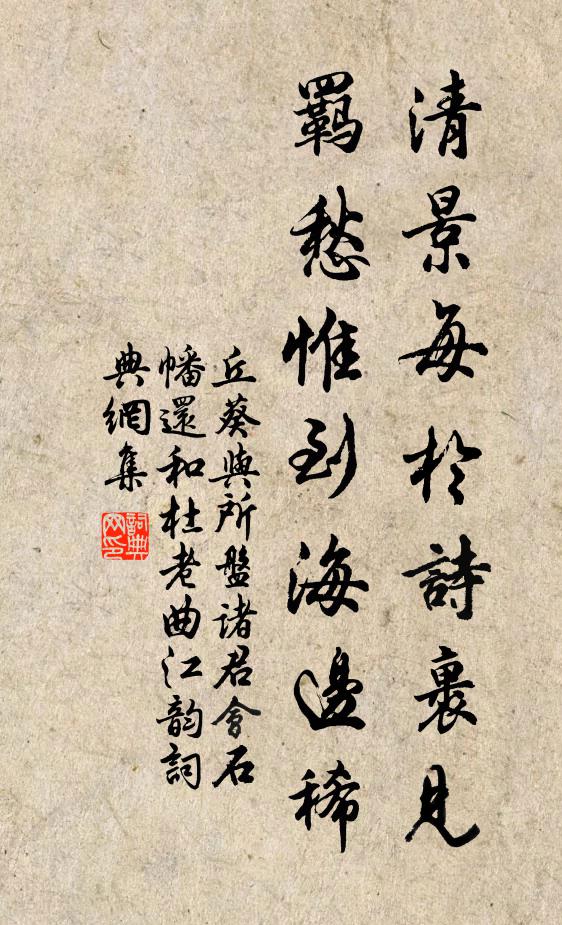 清景每於詩裏見
羈愁惟到海邊稀
丘葵與所盤諸君會石
幡還和杜老曲江韵詞
典網集
詞典
网印